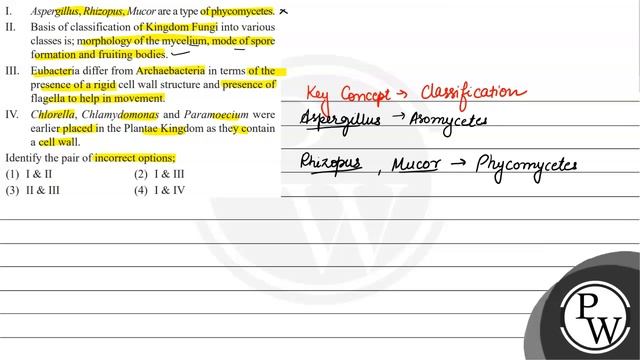 I. Aspergillus, Rhizopus, Mucor are a type of phycomycetes.
II. Basis of classification of Kingdom Fungi into various
classes is; morphology of the mycelium, mode of spore
formation and fruiting bodies.
III. Eubacteria differ from Archaebacteria in terms of the
presence of a rigid cell wall structure and presence of
flagella to help in movement.
IV. Chlorella, Chlamydomonas and Paramoecium were
earlier placed in the Plantae Kingdom as they contain
a cell wall.
Identify the pair of incorrect options;
(1) I & II (2) I & III
(3) II & III (4) I & IV
Key Concept → Classification
Aspergillus → Asomycetes
Rhizopus, Mucor → Phycomycetes
P
W